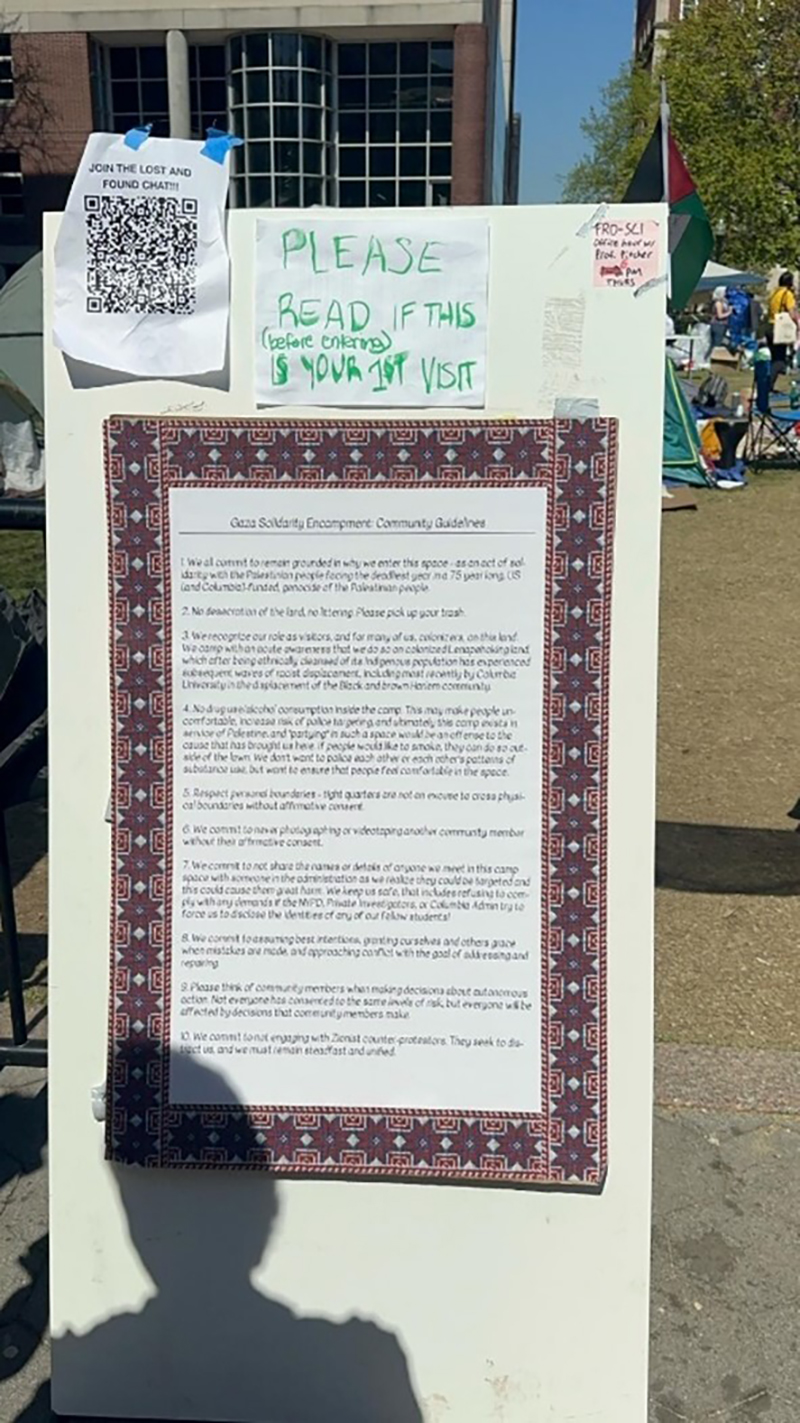 JOIN THE LOST AND
FOUND CHAT!!!
PLEASE
READ IF THIS
(before entering)
IS YOUR 1ST VISIT
FRO-SCI
office hour w/
Prof. Pitcher
6
PM
THURS
Gaza Solidarity Encampment: Community Guidelines
1. We all commit to remain grounded in why we enter this space - as an act of sol-
idarity with the Palestinian people facing the deadliest year in a 75 year long, US
(and Columbia)-funded, genocide of the Palestinian people.
2. No desecration of the land, no littering. Please pick up your trash.
3. We recognize our role as visitors, and for many of us, colonizers, on this land.
We camp with an acute awareness that we do so on colonized Lenapehoking land,
which after being ethnically cleansed of its Indigenous population has experienced
subsequent waves of racist displacement, including most recently by Columbia
University in the displacement of the Black and brown Harlem community.
4. No drug use/alcohol consumption inside the camp. This may make people un-
comfortable, increase risk of police targeting, and ultimately this camp exists in
service of Palestine, and "partying" in such a space would be an offense to the
cause that has brought us here. If people would like to smoke, they can do so out-
side of the lawn. We don't want to police each other or each other's patterns of
substance use, but want to ensure that people feel comfortable in the space.
5. Respect personal boundaries - tight quarters are not an excuse to cross physi-
cal boundaries without affirmative consent.
6. We commit to never photographing or videotaping another community member
without their affirmative consent.
7. We commit to not share the names or details of anyone we meet in this camp
space with someone in the administration as we realize they could be targeted and
this could cause them great harm. We keep us safe, that includes refusing to com-
ply with any demands if the NYPD, Private Investigators, or Columbia Admin try to
force us to disclose the identities of any of our fellow students!
8. We commit to assuming best intentions, granting ourselves and others grace
when mistakes are made, and approaching conflict with the goal of addressing and
repairing.
9. Please think of community members when making decisions about autonomous
action. Not everyone has consented to the same levels of risk, but everyone will be
affected by decisions that community members make.
10. We commit to not engaging with Zionist counter-protestors. They seek to dis-
tract us, and we must remain steadfast and unified.